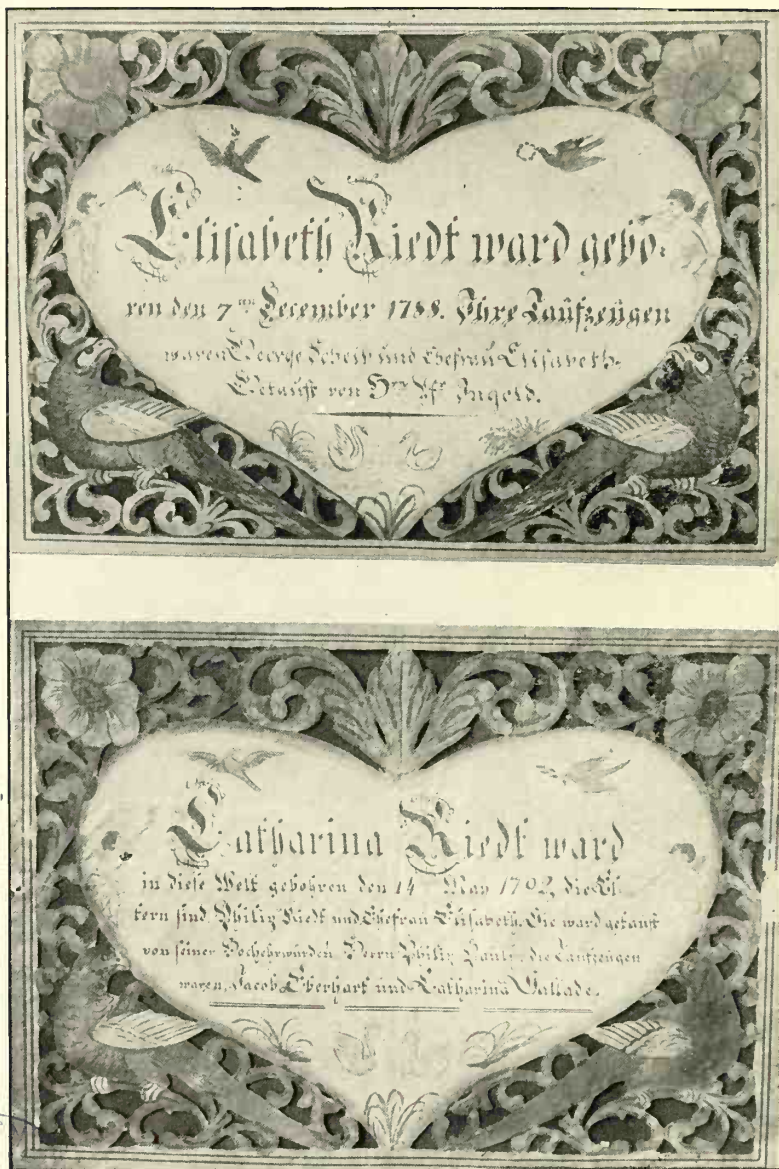 Elisabeth Riedt ward gebo⸗
ren den 7ten December 1788. Ihre Taüfzeügen
waren George Scheir und Ehefrau Elisabeth.
Getauft von Hrn Pfr Ingold.
Catharina Riedt ward
in diese Welt gebohren den 14 May 1792, die El⸗
tern sind Philip Riedt und Ehefrau Elisabeth. Sie ward getauft
von seiner Hochehrwürden Herrn Philip Pauli, die Taufzeugen
waren, Jacob Eberhart und Catharina Vallade.